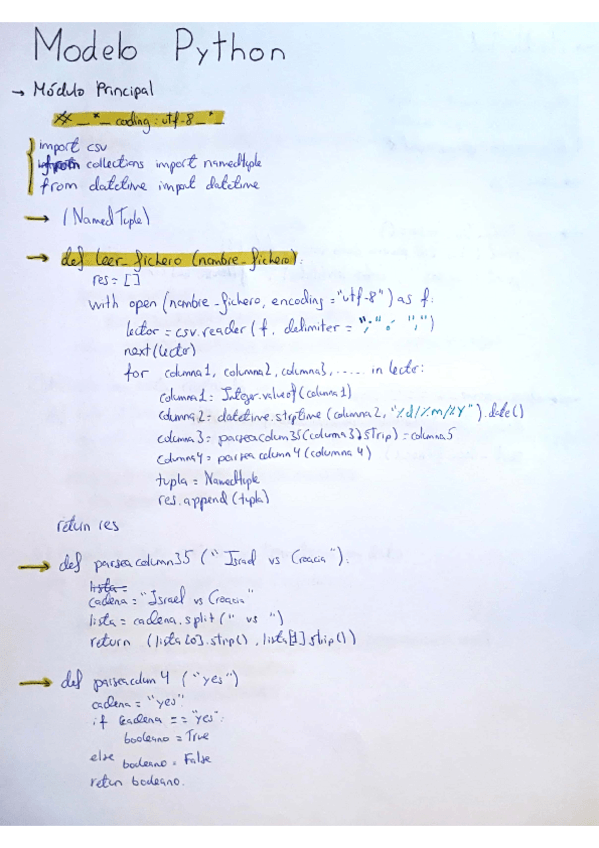 Modelo Python
→ Módulo Principal
## _*_ coding: utf-8 _*_
import csv
from collections import namedtuple
from datetime import datetime
→ (NamedTuple)
→ def leer_fichero (nombre_fichero):
res = []
with open (nombre_fichero, encoding = "utf-8") as f:
lector = csv.reader (f, delimiter = ";" o ",")
next (lector)
for columna1, columna2, columna3, ..... in lector:
columna1 = Integer.valueof (columna1)
columna2 = datetime.strptime (columna2, "%d/%m/%Y").date()
columna3 = parseacolum35 (columna3).strip) = columna5
columna4 = parseacolumn4 (columna4)
tupla = Namedtuple
res.append (tupla)
return res
→ def parseacolumn35 ("Israel vs Croacia"):
lista=
cadena = "Israel vs Croacia"
lista = cadena.split (" vs ")
return (lista[0].strip(), lista[1].strip())
→ def parseacolum4 ("yes")
cadena = "yes"
if cadena == "yes":
booleano = True
else
booleano = False
return booleano.